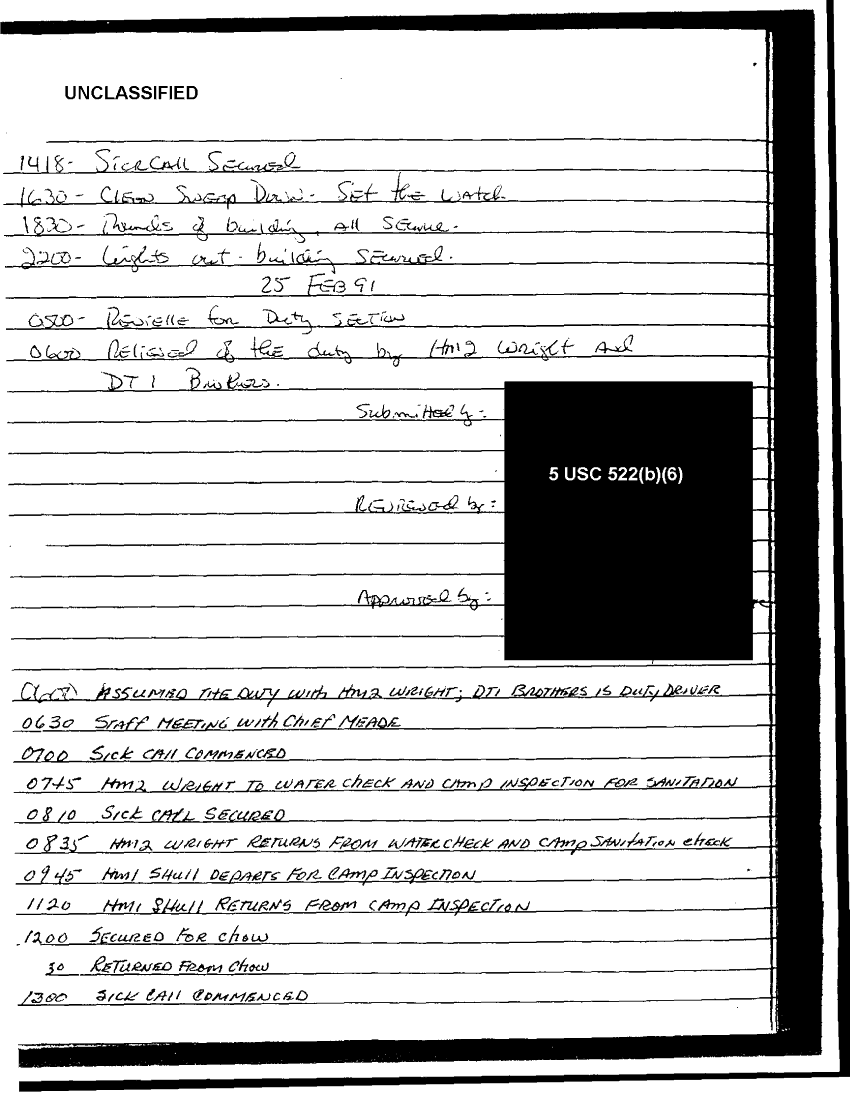 UNCLASSIFIED
1418- Sick Call Secured
1630- Clean Sweep Down- Set the watch
1830- Rounds of building, All Secure.
2200- Lights out- building Secured.
25 FEB 91
0500- Revielle for Duty Section
0600 Relieved of the duty by HM2 Wright and
DT1 Brothers.
Submitted by:
5 USC 522(b)(6)
Reviewed by:
Approved by:
0600 ASSUMED THE DUTY with HM2 WRIGHT; DT1 BROTHERS IS DUTY DRIVER
0630 STAFF MEETING with Chief MEADE
0700 SICK CALL COMMENCED
0745 HM2 WRIGHT TO WATER CHECK AND CAMP INSPECTION FOR SANITATION
0810 SICK CALL SECURED
0835 HM2 WRIGHT RETURNS FROM WATER CHECK AND CAMP SANITATION CHECK
0945 HM1 SHULL DEPARTS FOR CAMP INSPECTION
1120 HM1 SHULL RETURNS FROM CAMP INSPECTION
1200 SECURED FOR CHOW
30 RETURNED FROM CHOW
1300 SICK CALL COMMENCED